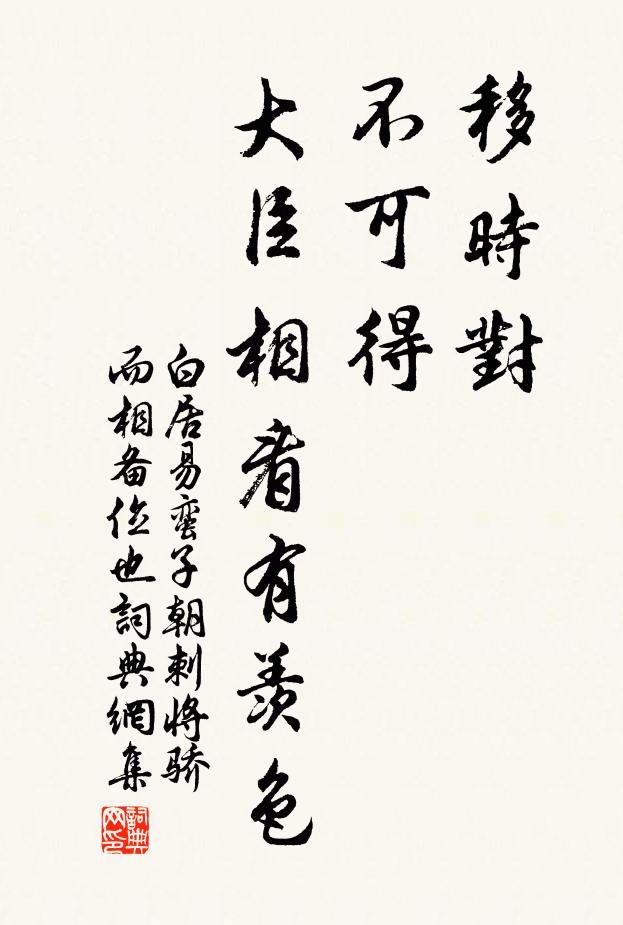 移時對
不可得
大臣相看有羨色
白居易蛮子朝刺将骄
而相备位也詞典網集
詞典网印